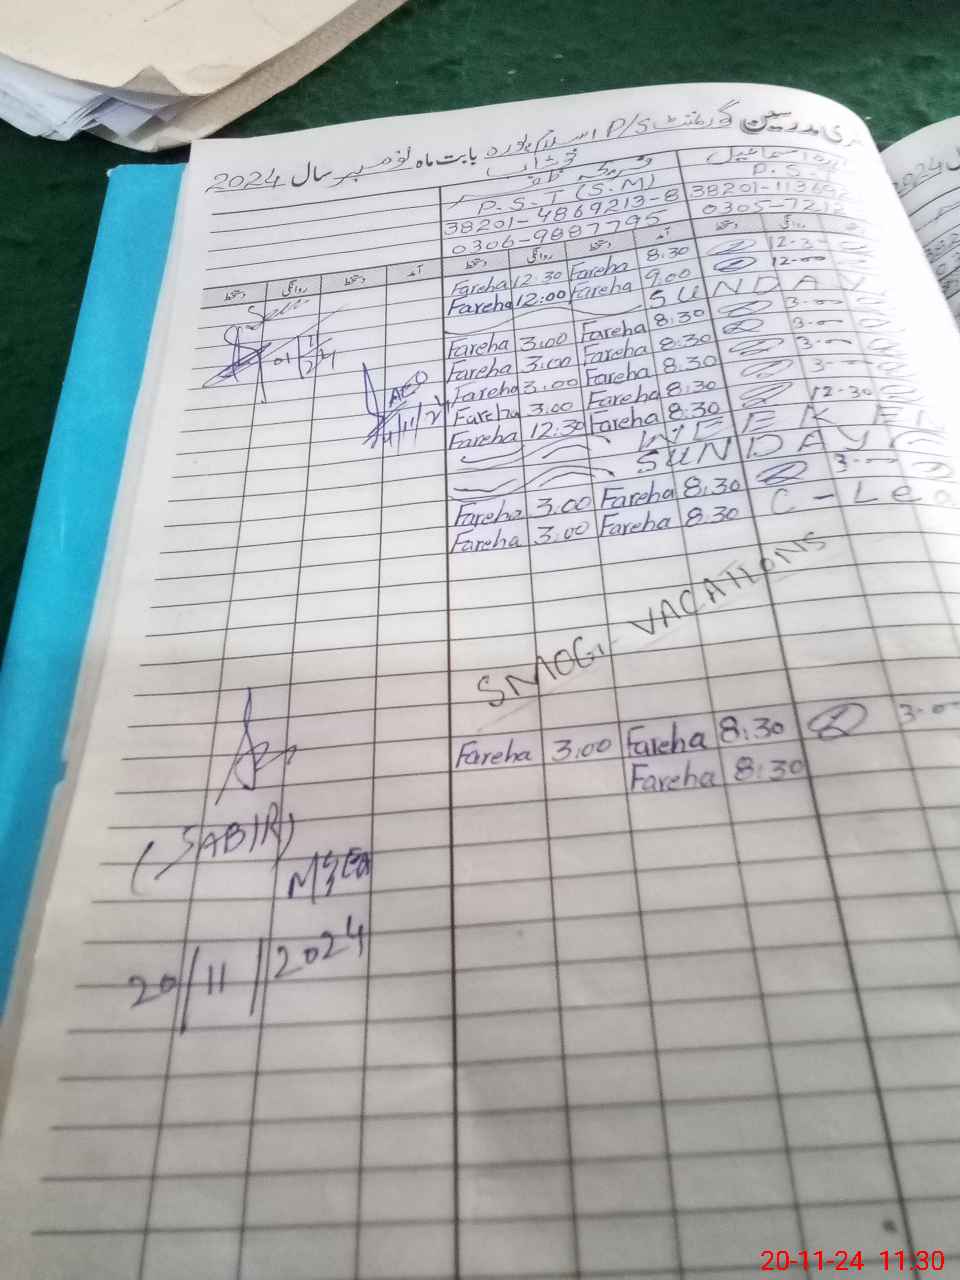 حاضری مدرسین گورنمنٹ P/S اسلام پورہ بابت ماہ نومبر سال 2024
خوشاب
P.S.T (S.M)
38201-4869213-8 38201-11369
0306-9887795 0305-721
دستخط روانگی دستخط آمد دستخط روانگی دستخط آمد دستخط روانگی
Fareha 12.30 Fareha 8.30 12-30
Fareha 12:00 Fareha 9.00 12-00
SUNDAY
Fareha 3.00 Fareha 8.30 3-00
Fareha 3.00 Fareha 8:30 3-00
Fareha 3.00 Fareha 8.30 3-00
Fareha 3.00 Fareha 8:30 3-00
Fareha 12.30 Fareha 8.30 12-30
WEEK E
SUNDAY
Fareha 3.00 Fareha 8:30 3-00
Fareha 3.00 Fareha 8:30 C-Lea
AEO
SMOG VACATIONS
Fareha 3.00 Fareha 8:30 3-00
Fareha 8:30
(SABIR)
20/11/2024
2024
20-11-24 11:30